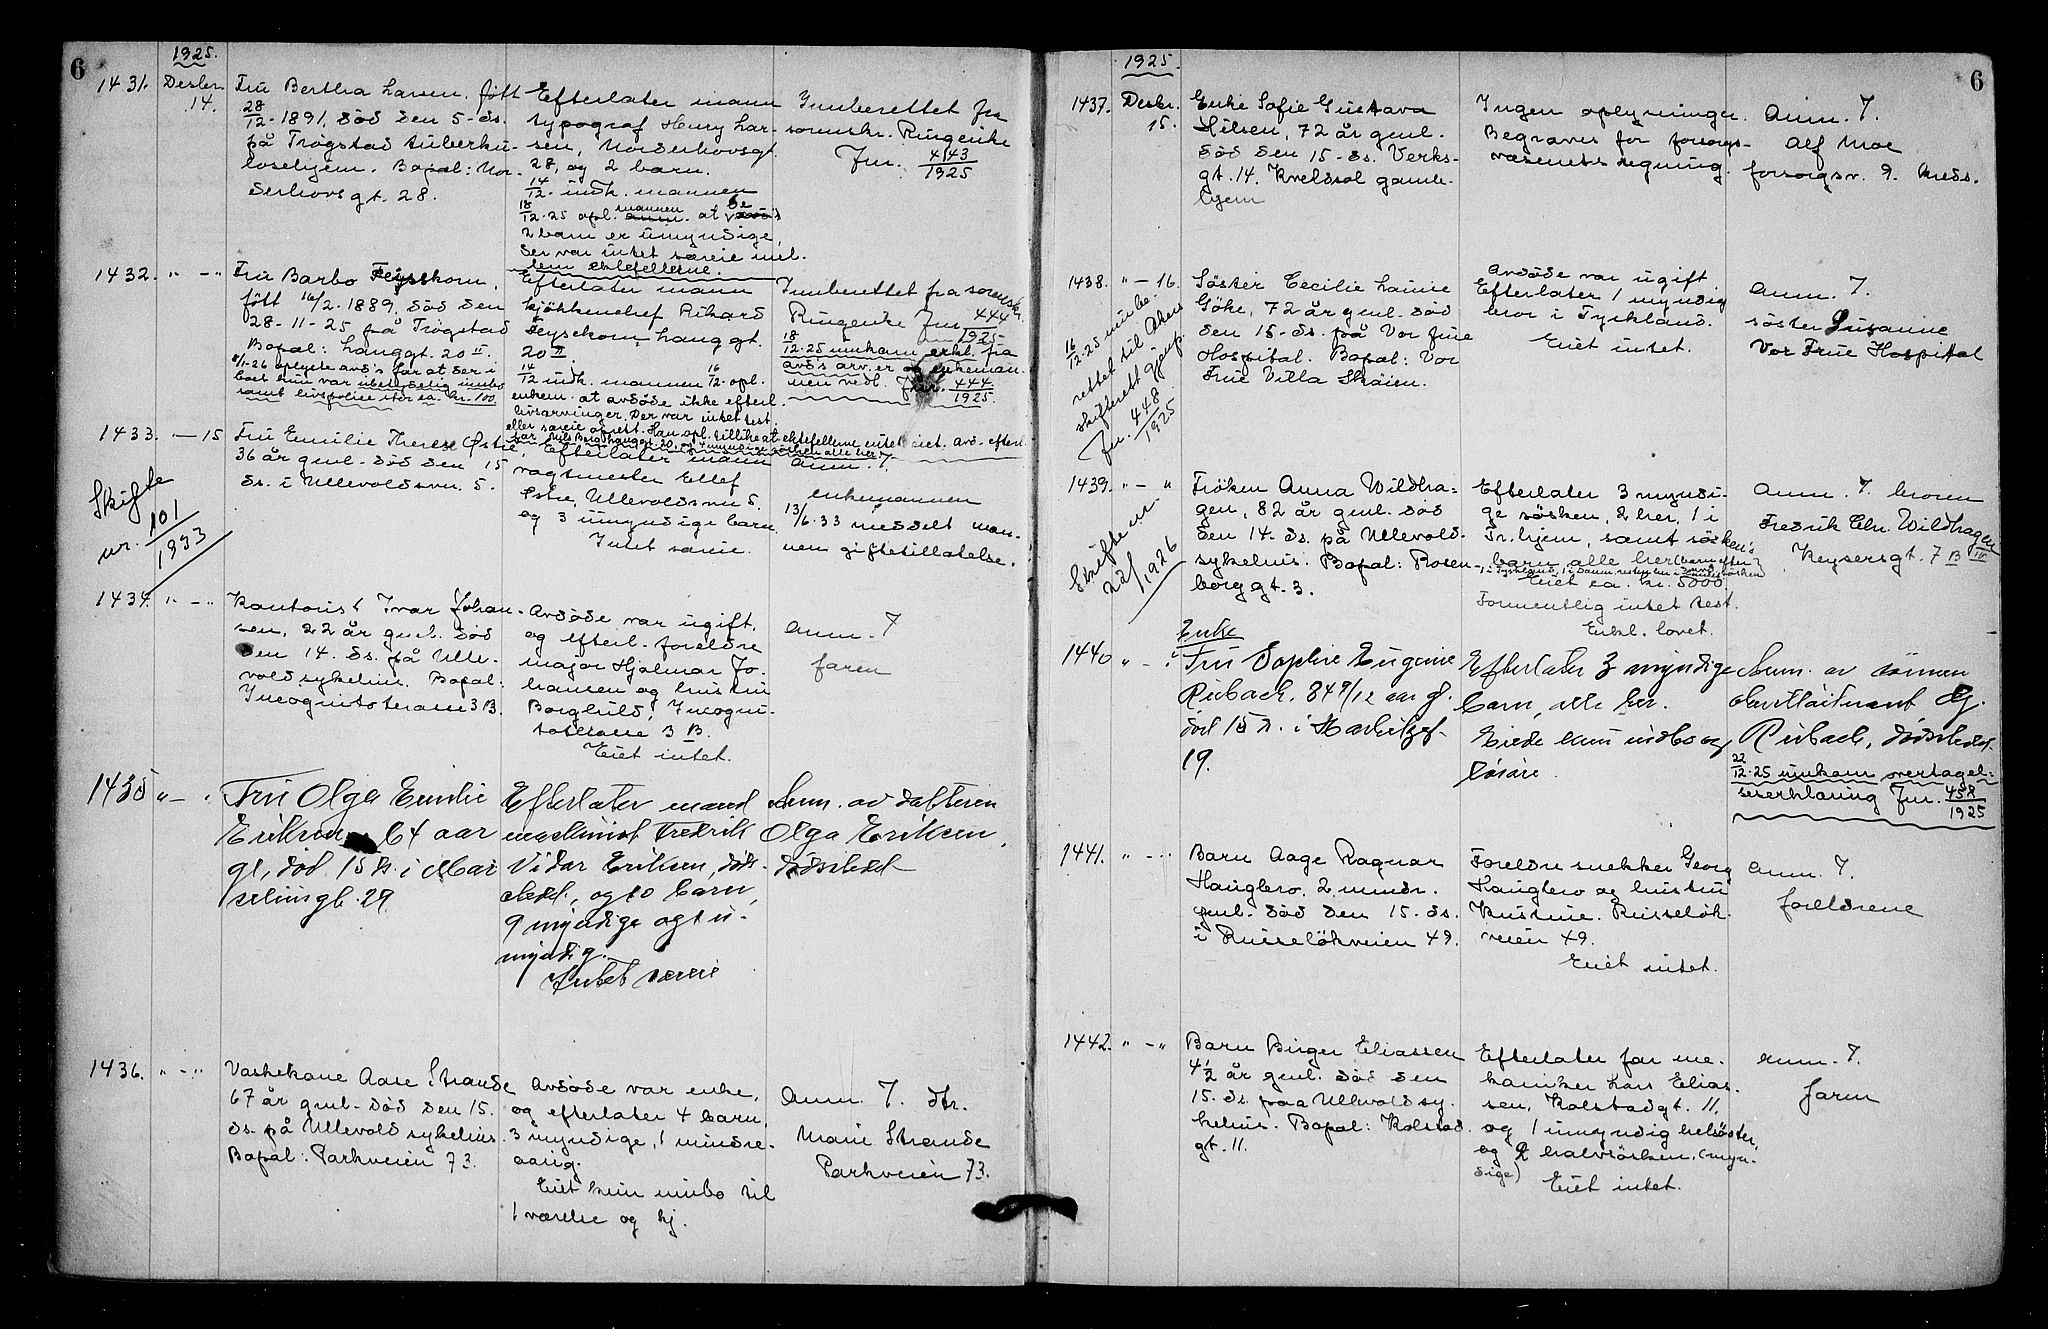 6
1925.
1431. Desbr. 14.
Fru Bertha Larsen, født
28/12-1891, død den 5-ds.
på Trøgstad tuberku-
losehjem. Bopæl: Nor-
derhovsgt. 28.
Efterlater mann
typograf Henry Lar-
sen, Norderhovsgt.
28, og 2 barn.
14/12. indk. mannen
18/12-25 opl. mannen at de
2 barn er umyndige,
der var intet særeie mel.
lem ektefellerne.
Innberettet fra
sorenskr. Ringerike
Jnr. 443/1925
1432. " — "
Fru Barbo Feyschom,
født 16/2-1889, død den
28-11-25 på Trøgstad
Bopæl: Langgt. 20 II.
8/1-26 oplyste avd's far at der i
boet kun var ubetydelig innbo
samt livspolise stor ca. kr. 100.
Efterlater mann
kjøkkenchef Rikard
Feyschom, Langgt.
20 II
14/12 indk. mannen 16/12. opl.
enkem. at avdøde ikke efterl.
livsarvinger. Der var intet test.
eller særeie oprett. Han opl. tillike at ektefellerne intet eiet. avd. efterl.
far Nils Berg Langgt. 20, og 4 umyndige søsken alle her.
Innberettet fra sorenskr.
Ringerike Jnr. 444/1925
18/12-25 innkom erkl. fra
avd's arv. er og enkeman-
nen vedl. Jnr. 444/1925.
1433. — 15
Skifte
nr. 101/1933
Fru Emilie Therese Østie,
36 år gml. død den 15
ds. i Ullevoldsvn. 5.
Efterlater mann
vognmester Ellef
Østie, Ullevoldsvn 5.
og 3 umyndige barn
Intet særeie.
Anm. 7.
enkemannen
13/6-33 meddelt man-
nen giftetillatelse.
1434. " — "
Kontorist Ivar Johan-
sen, 22 år gml. død
den 14. ds. på Ulle-
vold sykehus. Bopæl:
Incognitoterasse 3 B.
Avdøde var ugift,
og efterl. foreldre
major Hjalmar Jo-
hansen og hustru
Borghild, Incogni-
toterasse 3 B.
Eiet intet.
Anm. 7
faren
1435 " — "
Fru Olga Emilie
Eriksen 64 aar
gl, död 15 ds. i Mar
seliusgt. 29.
Efterlater mand
maskinist Fredrik
Vidar Eriksen, døds-
stedet, og 10 barn,
9 myndige og 1 u-
myndig.
Intet særeie
Anm. av datteren
Olga Eriksen,
dødsstedet
1436. " — "
Vaskekone Aase Strande
67 år gml. død den 15.
ds. på Ullevold sykehus.
Bopæl: Parkveien 73.
Avdøde var enke,
og efterlater 4 barn,
3 myndige, 1 mindre-
aarig.
Eiet kun innbo til
1 værelse og kj.
Anm. 7. dtr.
Marie Strande
Parkveien 73.
6
1925.
1437. Desbr. 15.
Enke Sofie Gustava
Nilsen, 72 år gml.
død den 15-ds. Verks-
gt. 14. Kveldsol gamle-
hjem
Ingen oplysninger.
Begraves for forsorgs-
væsenets regning.
Anm. 7.
Alf Moe
forsorgsv. 9. kreds.
1438. " — 16.
16/12-25 innbe-
rettet til Akers
skifterett gjenp.
Jnr. 448/1925
Søster Cecilie Lanine
Göke, 72 år gml. død
den 15-ds. på Vor frue
Hospital. Bopæl: Vor
Frue Villa Skøien.
Avdøde var ugift
Efterlater 1 myndig
bror i Tyskland.
Eiet intet.
Anm. 7.
søster Susanne
Vor Frue Hospital
1439. " — "
Skifte nr
22/1926
Frøken Anna Wildha-
gen, 82 år gml. død
den 14. ds. på Ullevold
sykehus. Bopæl: Rosen-
borggt. 3.
Efterlater 3 myndi-
ge søsken, 2 her, 1 i
Tr.hjem, samt søsken's
barn, alle her (barn efter
Eiet ca. kr. 5000
Formentlig intet test.
Enkl. lovet.
Anm. 7. broren
Fredrik Chr. Wildhagen
Keysersgt. 7 B IV
1440 " — "
Enke
Fru Sophie Eugenie
Ribach, 84 9/12 aar gl.
död 15 ds. i Harbitzgt.
19.
Efterlater 3 myndige
barn, alle her.
Eiede kun indbo og
løsøre.
Anm. av sønnen
oberstløitnant Chr.
Ribach, dødsstedet.
22/12-25 innkom overtagel-
seserklæring Jnr. 458/1925
1441. " — "
Barn Aage Ragnar
Haugbro, 2 mndr.
gml. død den 15. ds.
i Ruseløkveien 49.
Foreldre snekker Georg
Haugbro og hustru
Kristine. Ruseløk-
veien 49.
Eiet intet.
Anm. 7.
foreldrene
1442. " — "
Barn Birger Eliassen
4 1/2 år gml. død den
15. ds. paa Ullevold sy-
kehus. Bopæl: Kolstad
gt. 11.
Efterlater far me-
kaniker Lars Elias-
sen, Kolstadgt. 11.
og 1 umyndig helsøster,
og 2 halvsøsken. (myn-
dige)
Eiet intet.
Anm. 7.
faren